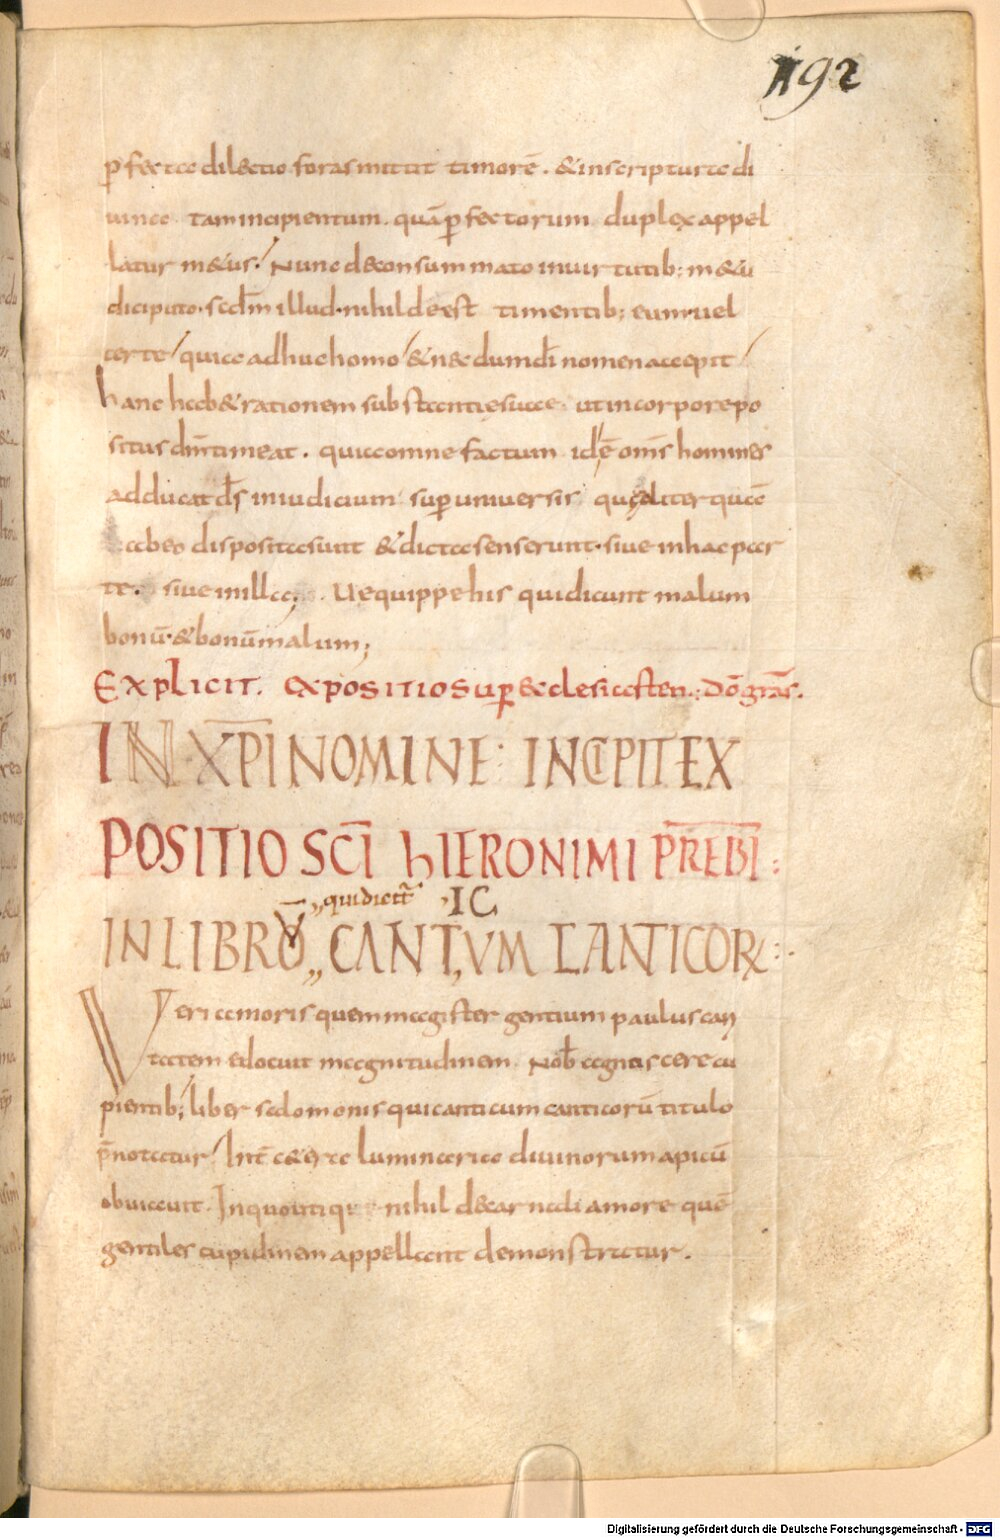 192
p̄fecta dilectio foras mittit timorē. & in scriptura di
uina tam incipientum. quā p̄fectorum duplex appel
latur m&us. Nunc de consummato in uirtutib; m&u
dici puto. scdm̄ illud. nihil deest timentib; eum. uel
certe quia adhuc homo & necdum dī nomen accepit
hanc hab& rationem substantię suae. ut in corpore po
situs dn̄m timeat. quia omne factum id ē om̄s homines
adducat dš in iudicium super uniuersis qu& aliter quā
ab eo disposita sunt & dicta senserunt. siue in hac par
te. siue in illa; . Ue quippe his qui dicunt malum
bonū. & bonū malum;
Explicit. expositio sup̄ ecclesiasten. :dō grās.
IN XP̄I NOMINE: INCIPIT EX
POSITIO SC̄I hIERONIMI PREBI:
quidicit̄ IC
IN LIBRŌ CANTVM CANTICOR:.
Veri amoris quem magister gentium paulus cari
tatem edocuit magnitudinem. Nob̄ agnascere cu
pientib; liber salomonis qui canticum canticorū titulo
p̄notatur. Int̄ c&era luminaria diuinorum apicū
obuiauit. In quo utiq; nihil de carnali amore quē
gentiles cupidinem appellant demonstratur.
Digitalisierung gefördert durch die Deutsche Forschungsgemeinschaft - DFG